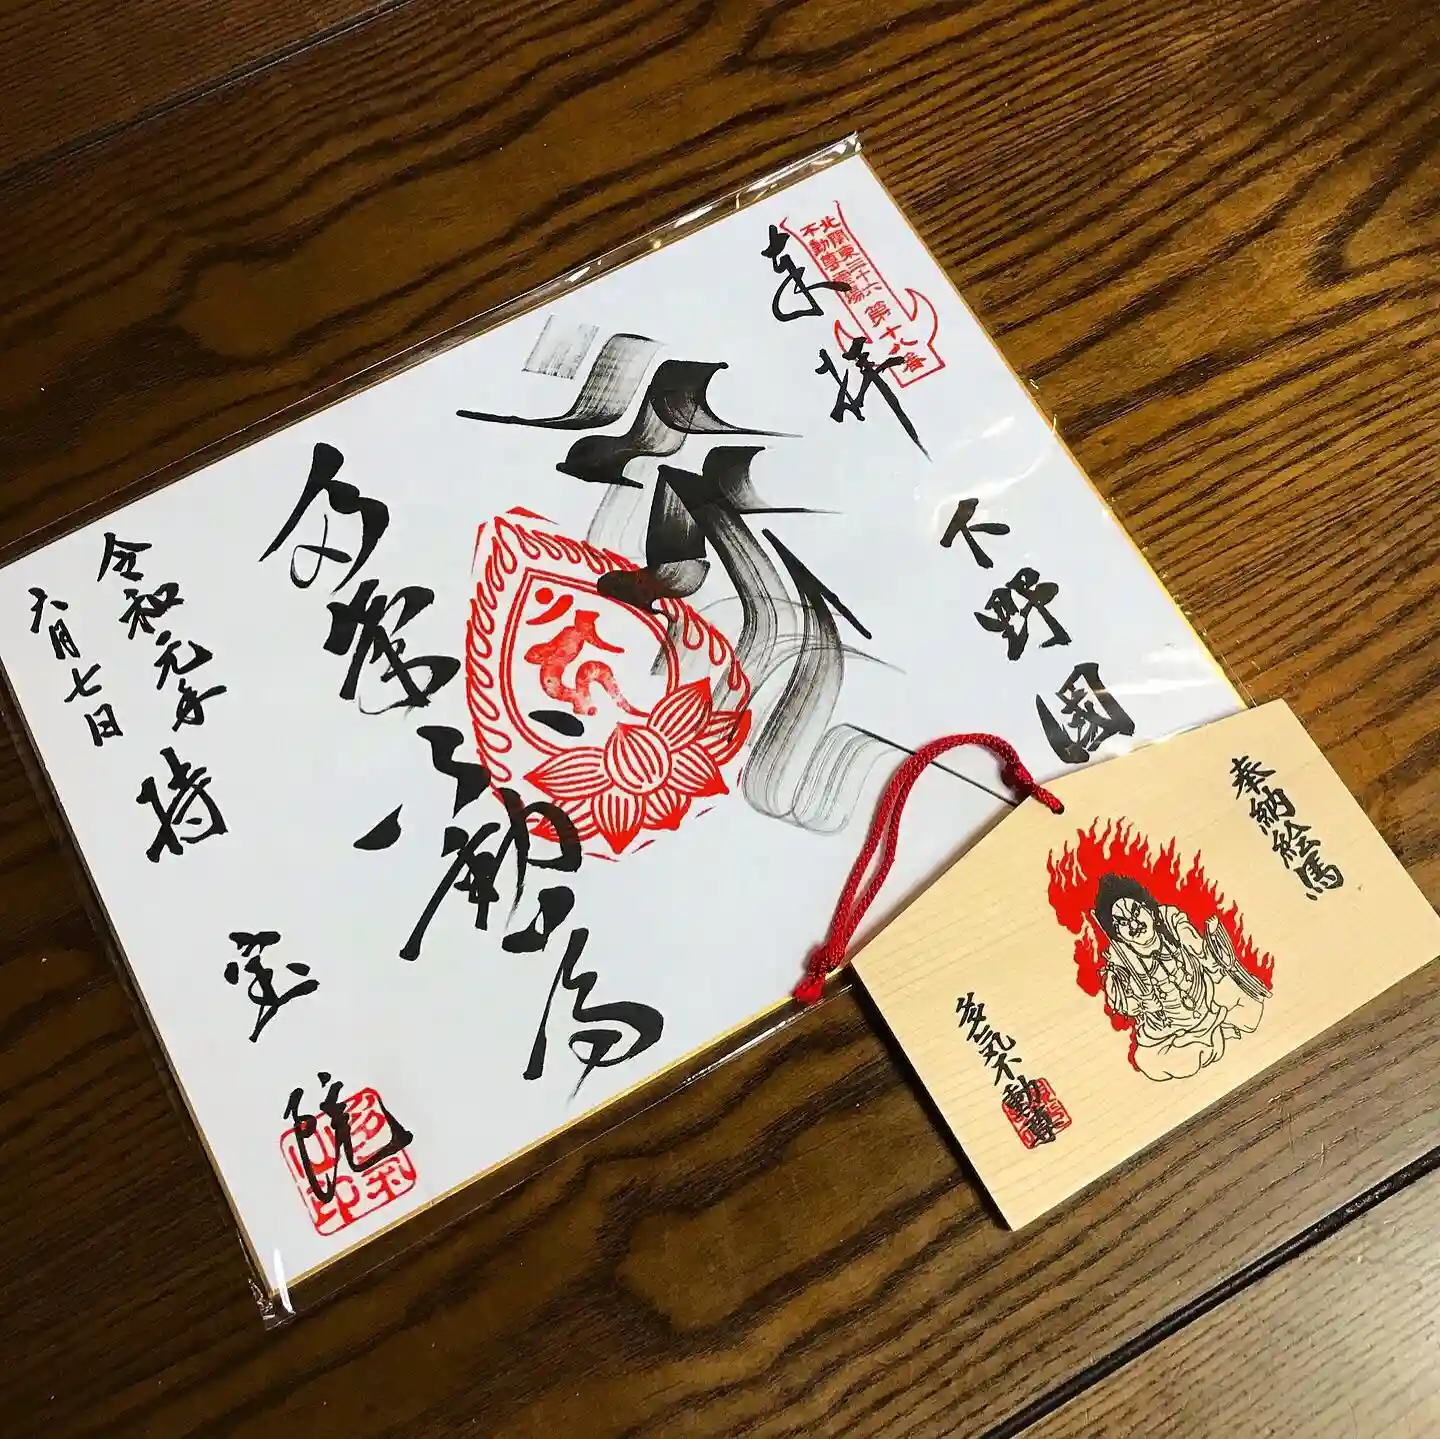 北関東三十六
不動尊霊場
第十八番
来拝
下野國
多气不動尊
令和元年
六月七日
持宝院
奉納絵馬
多气不動尊